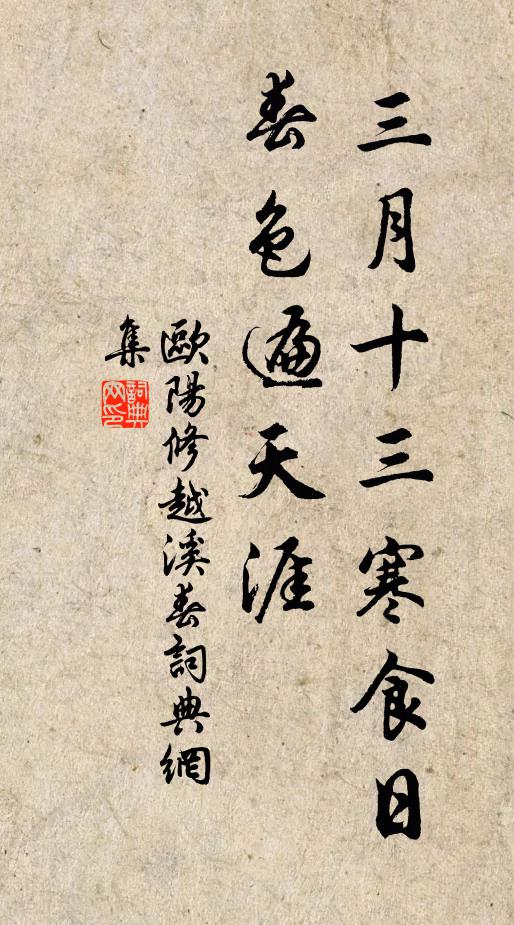 三月十三寒食日
春色遍天涯
歐陽修越溪春詞典網
集
詞典網印